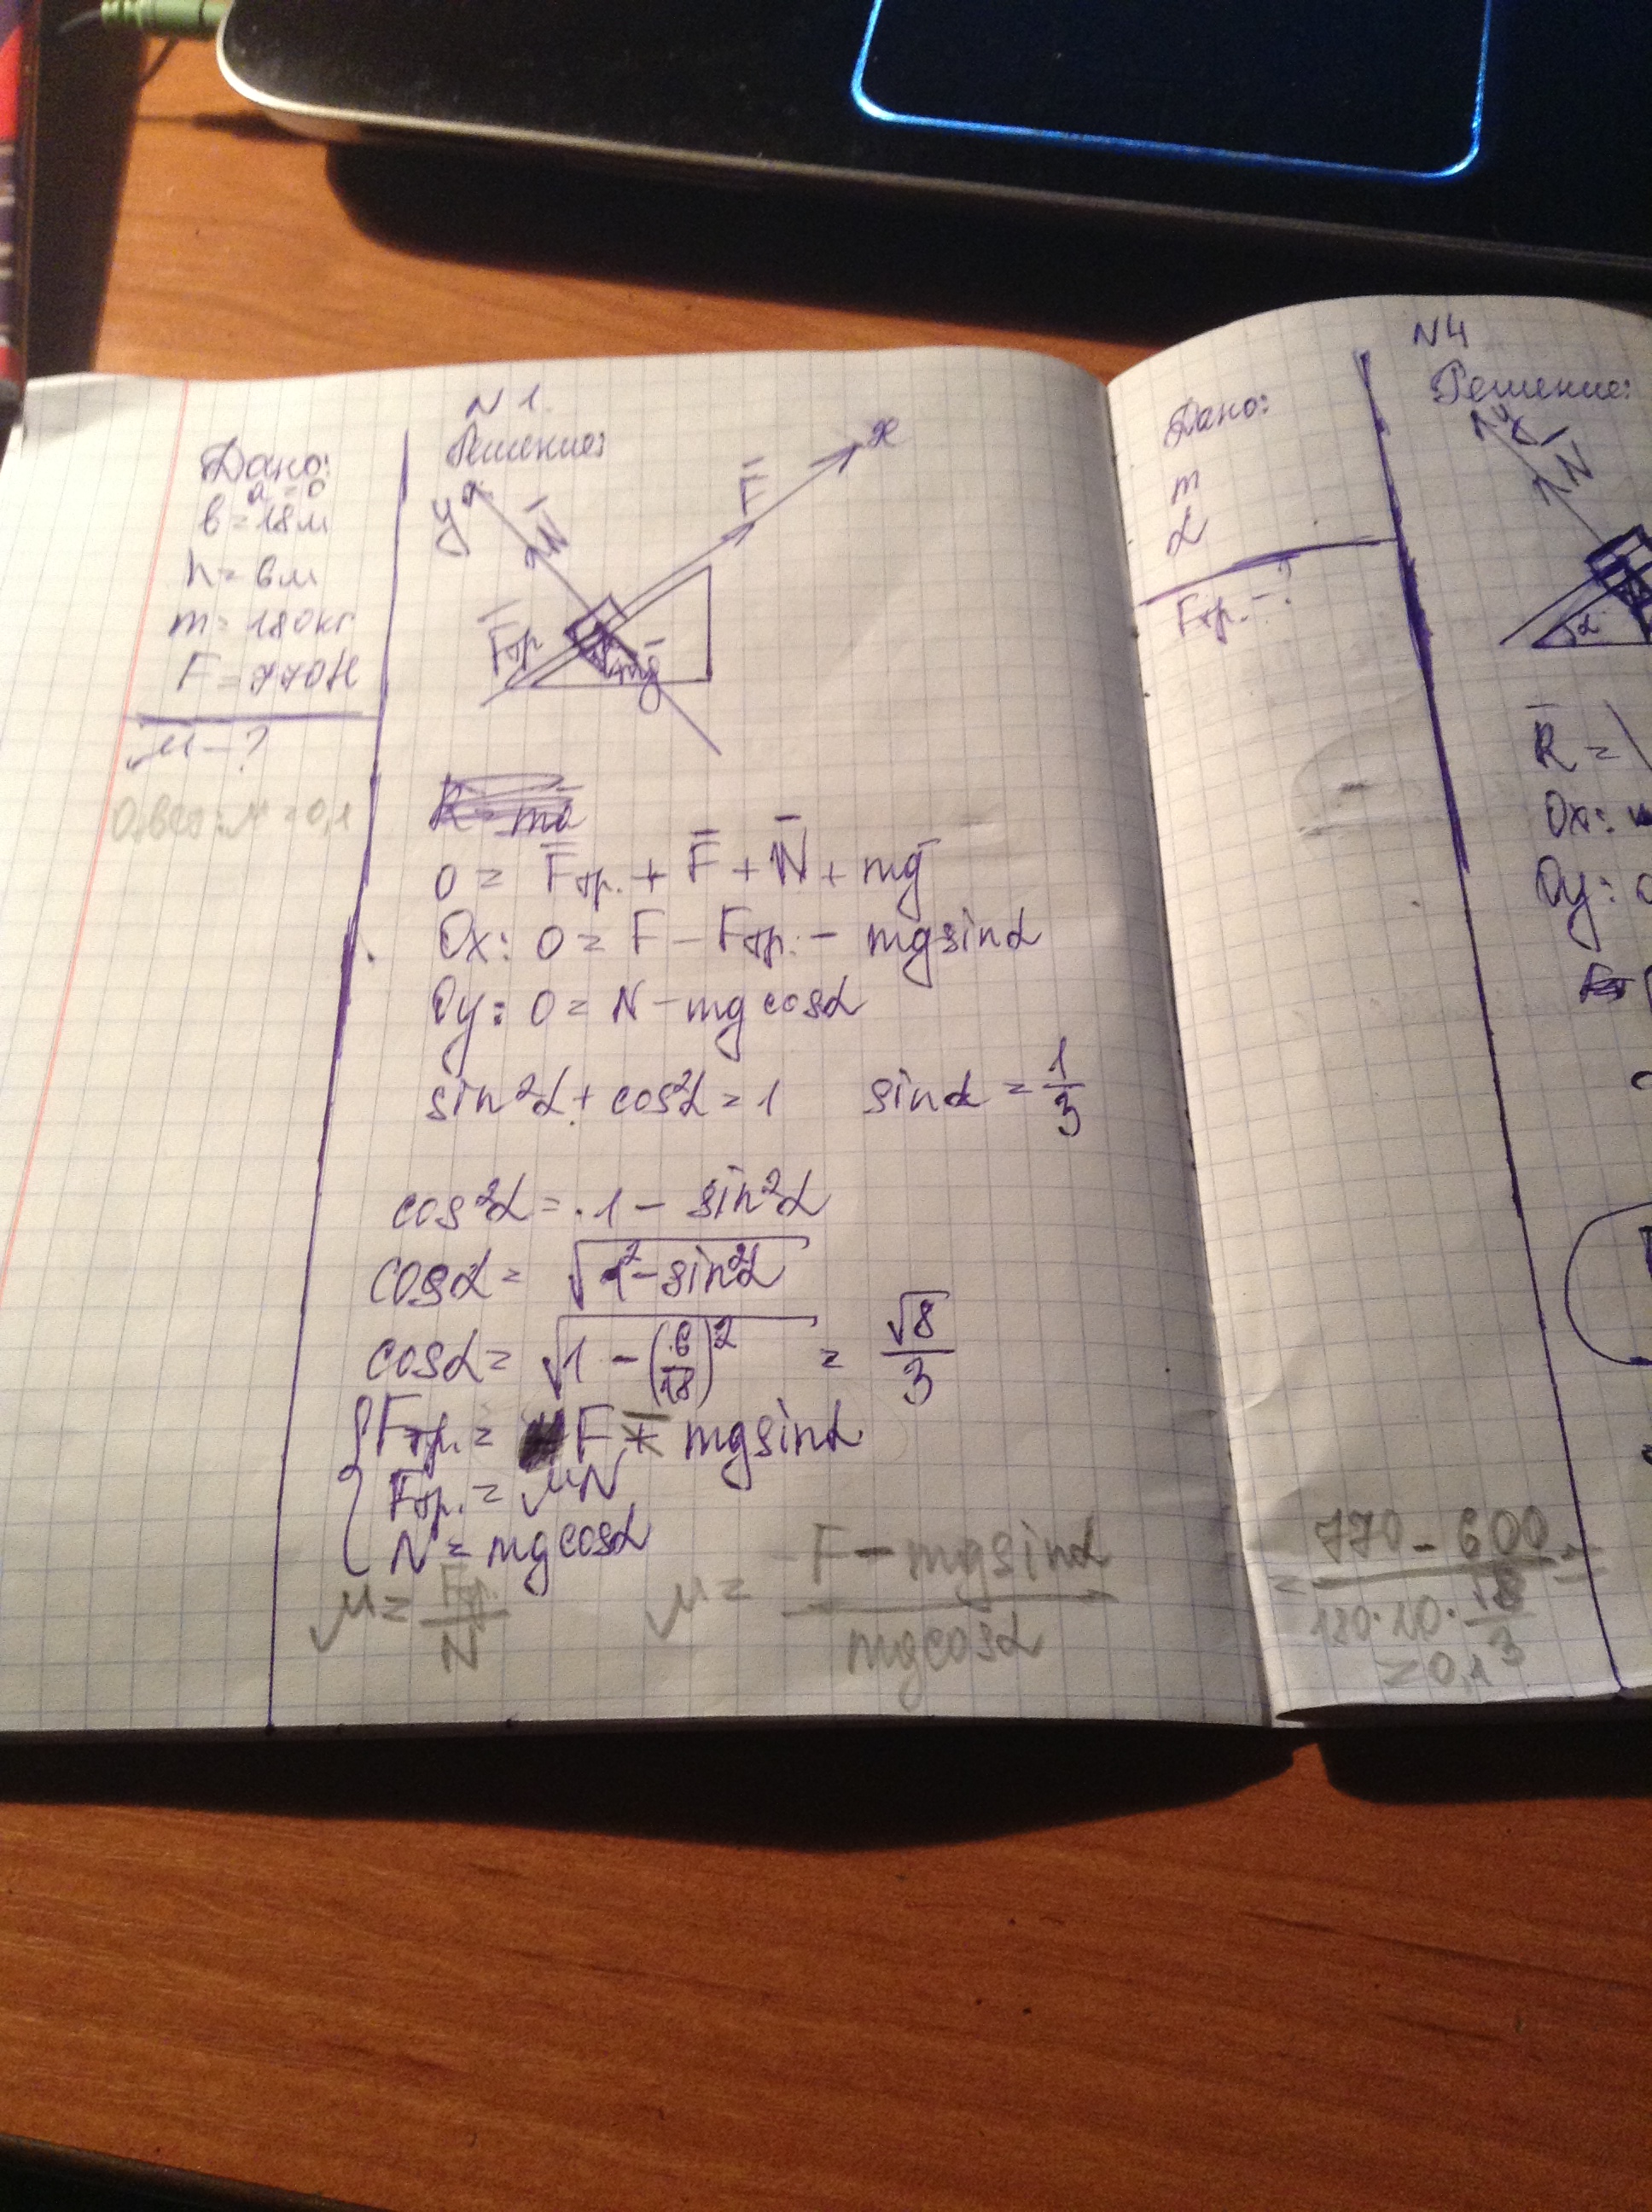 N 1.
Дано:
a = 0
b = 18м
h = 6м
m = 180кг
F = 770Н
μ - ?
Ответ: μ = 0,1
Решение:
y
N̄
F̄
x
F̄тр
mḡ
R = ma
0 = F̄тр. + F̄ + N̄ + mḡ
Ox: 0 = F - Fтр. - mg sinα
Oy: 0 = N - mg cosα
sin²α + cos²α = 1   sinα = 1/3
cos²α = 1 - sin²α
cosα = √(1² - sin²α)
cosα = √(1 - (6/18)²) = √8/3
Fтр. = F - mg sinα
Fтр. = μN
N = mg cosα
μ = Fтр./N   μ = (F - mg sinα)/(mg cosα)
N4
Дано:
m
α
Fтр. - ?
Решение:
y
N̄
α
R̄ =
Ox:
Oy: 0
= (770 - 600)/(180·10·√8/3) =
= 0,1